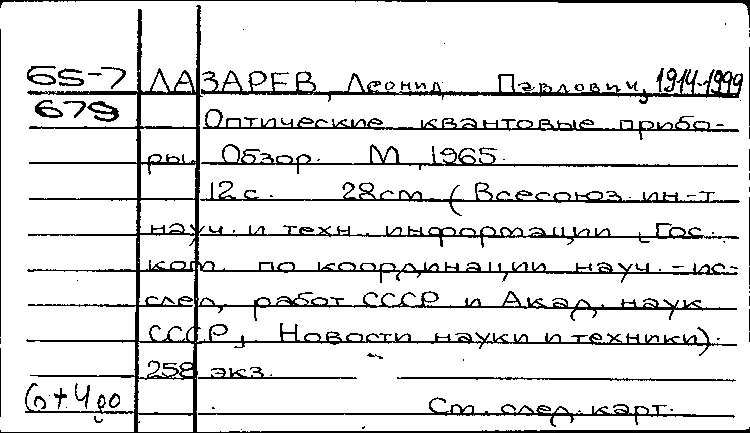 65-7 ЛАЗАРЕВ, Леонид Павлович, 1914-1999
679 Оптические квантовые прибо-
ры. Обзор. М., 1965.
12 с. 28 см. (Всесоюз. ин-т
науч. и техн. информации Гос.
ком. по координации науч.-ис-
след. работ СССР и Акад. наук
СССР, Новости науки и техники).
258 экз.
См. след. карт.